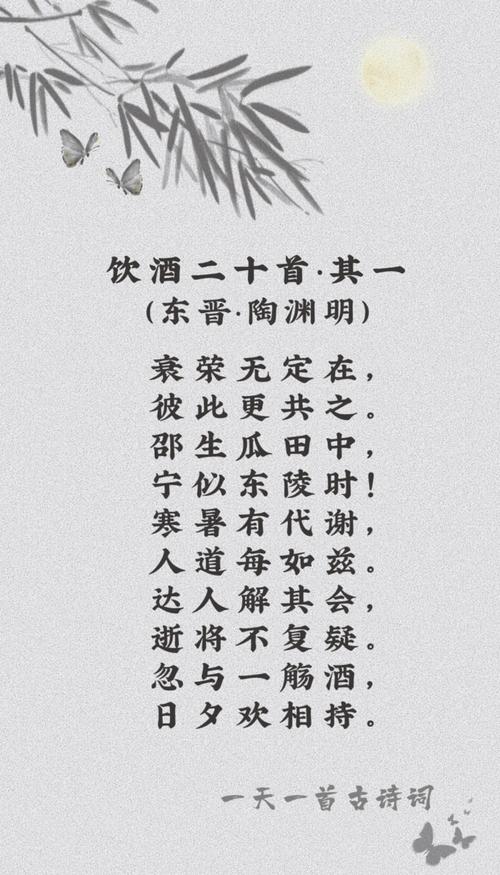 饮酒二十首·其一
(东晋·陶渊明)
衰荣无定在，
彼此更共之。
邵生瓜田中，
宁似东陵时！
寒暑有代谢，
人道每如兹。
达人解其会，
逝将不复疑。
忽与一觞酒，
日夕欢相持。
一天一首古诗词